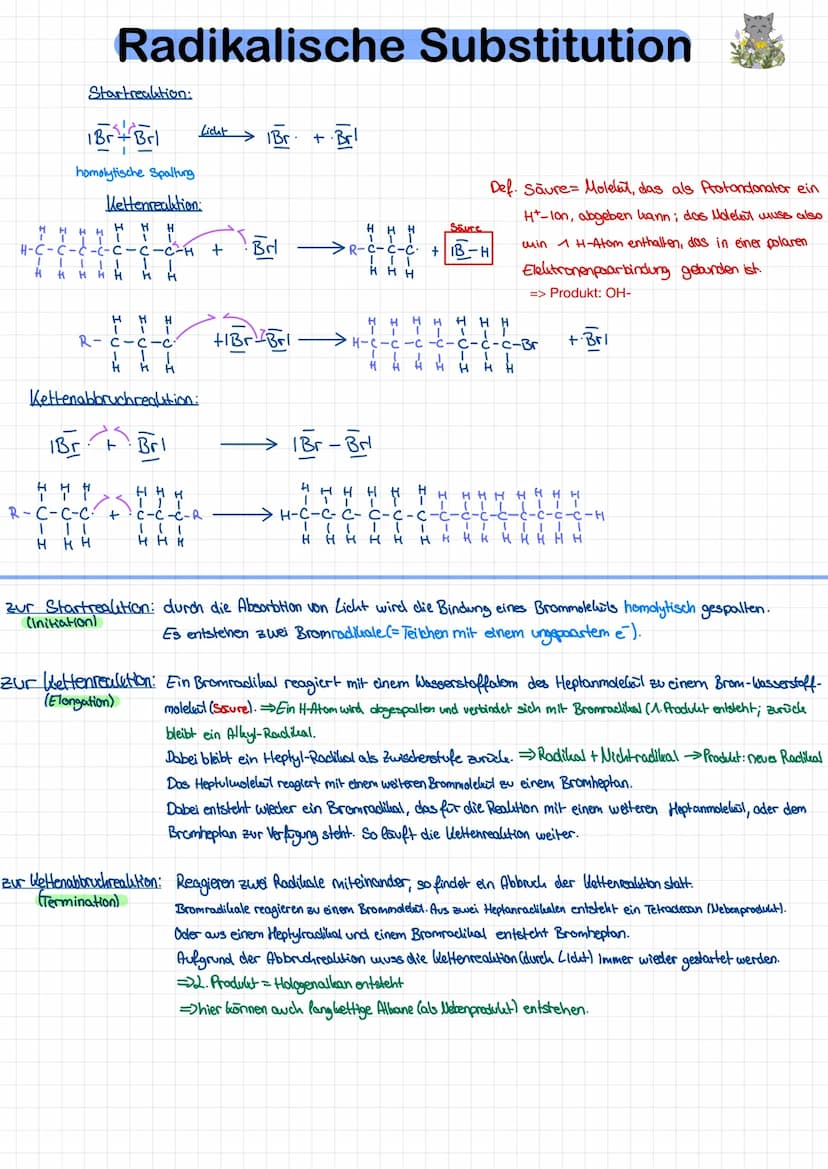 Radikalische Substitution
Startreaktion:
|Br + Br| Licht → |Br· + ·Br|
homolytische Spaltung
Def. Säure= Molekül, das als Protondonator ein
H⁺-Ion, abgeben kann; das Molekül muss also
min 1 H-Atom enthalten, das in einer polaren
Elektronenpaarbindung gebunden ist.
=> Produkt: OH-
Kettenreaktion:
H H H H H H H
Säure
H H H
H-C-C-C-C-C-C-C-H + ·Br| → R-C-C-C· + |B-H
H H H H H H H
H H H
H H H
H H H H H H H
R-C-C-C· + |Br-Br| → H-C-C-C-C-C-C-C-Br + ·Br|
H H H
H H H H H H H
Kettenabbruchreaktion:
|Br· + ·Br| → |Br-Br|
H H H
H H H
H H H H H H H H H H H H H
R-C-C-C· + ·C-C-C-R → H-C-C-C-C-C-C-C-C-C-C-C-C-C-H
H H H
H H H
H H H H H H H H H H H H H
zur Startreaktion: durch die Absorbtion von Licht wird die Bindung eines Brommoleküls homolytisch gespalten.
(Initiation)
Es entstehen zwei Bromradikale (= Teilchen mit einem ungepaartem e⁻).
zur Kettenreaktion: Ein Bromradikal reagiert mit einem Wasserstoffatom des Heptanmolekül zu einem Brom-Wasserstoff-
(Elongation)
molekül (Säure). ⇒ Ein H-Atom wird abgespalten und verbindet sich mit Bromradikal (1. Produkt entsteht; zurück
bleibt ein Alkyl-Radikal.
Dabei bleibt ein Heptyl-Radikal als Zwischenstufe zurück. ⇒ Radikal + Nichtradikal → Produkt: neues Radikal
Das Heptulmolekül reagiert mit einem weiteren Brommolekül zu einem Bromheptan.
Dabei entsteht wieder ein Bromradikal, das für die Reaktion mit einem weiteren Heptanmolekül, oder dem
Bromheptan zur Verfügung steht. So läuft die Kettenreaktion weiter.
zur Kettenabbruchreaktion: Reagieren zwei Radikale miteinander, so findet ein Abbruch der Kettenreaktion statt.
(Termination)
Bromradikale reagieren zu einem Brommolekül. Aus zwei Heptanradikalen entsteht ein Tetradecan (Nebenprodukt).
Oder aus einem Heptylradikal und einem Bromradikal entsteht Bromheptan.
Aufgrund der Abbruchreaktion muss die Kettenreaktion (durch Licht) immer wieder gestartet werden.
⇒ 2. Produkt = Halogenalkan entsteht
⇒ hier können auch langkettige Alkane (als Nebenprodukt) entstehen.